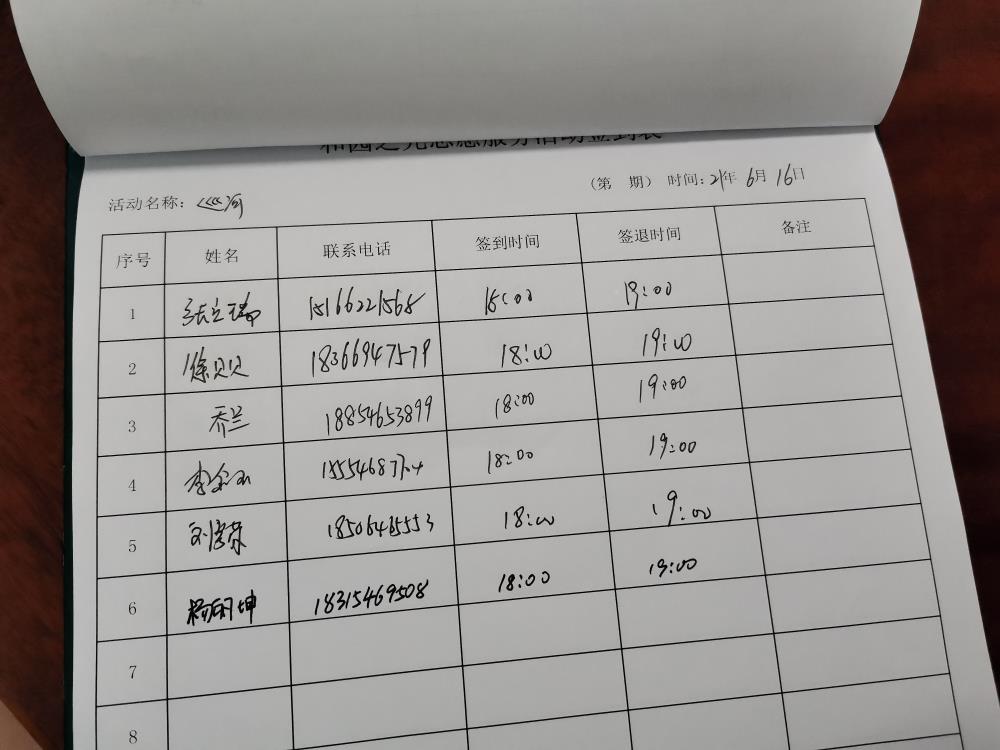 和园之光志愿服务活动签到表
(第 期) 时间:21年6月16日
活动名称:巡河
序号 姓名 联系电话 签到时间 签退时间 备注
1 张立瑞 15166221568 18:00 19:00
2 徐贝贝 18366947579 18:00 19:00
3 乔兰 18854653899 18:00 19:00
4 18:00 19:00
5 18:00 19:00
6 杨丽坤 18315469508 18:00 19:00
7
8